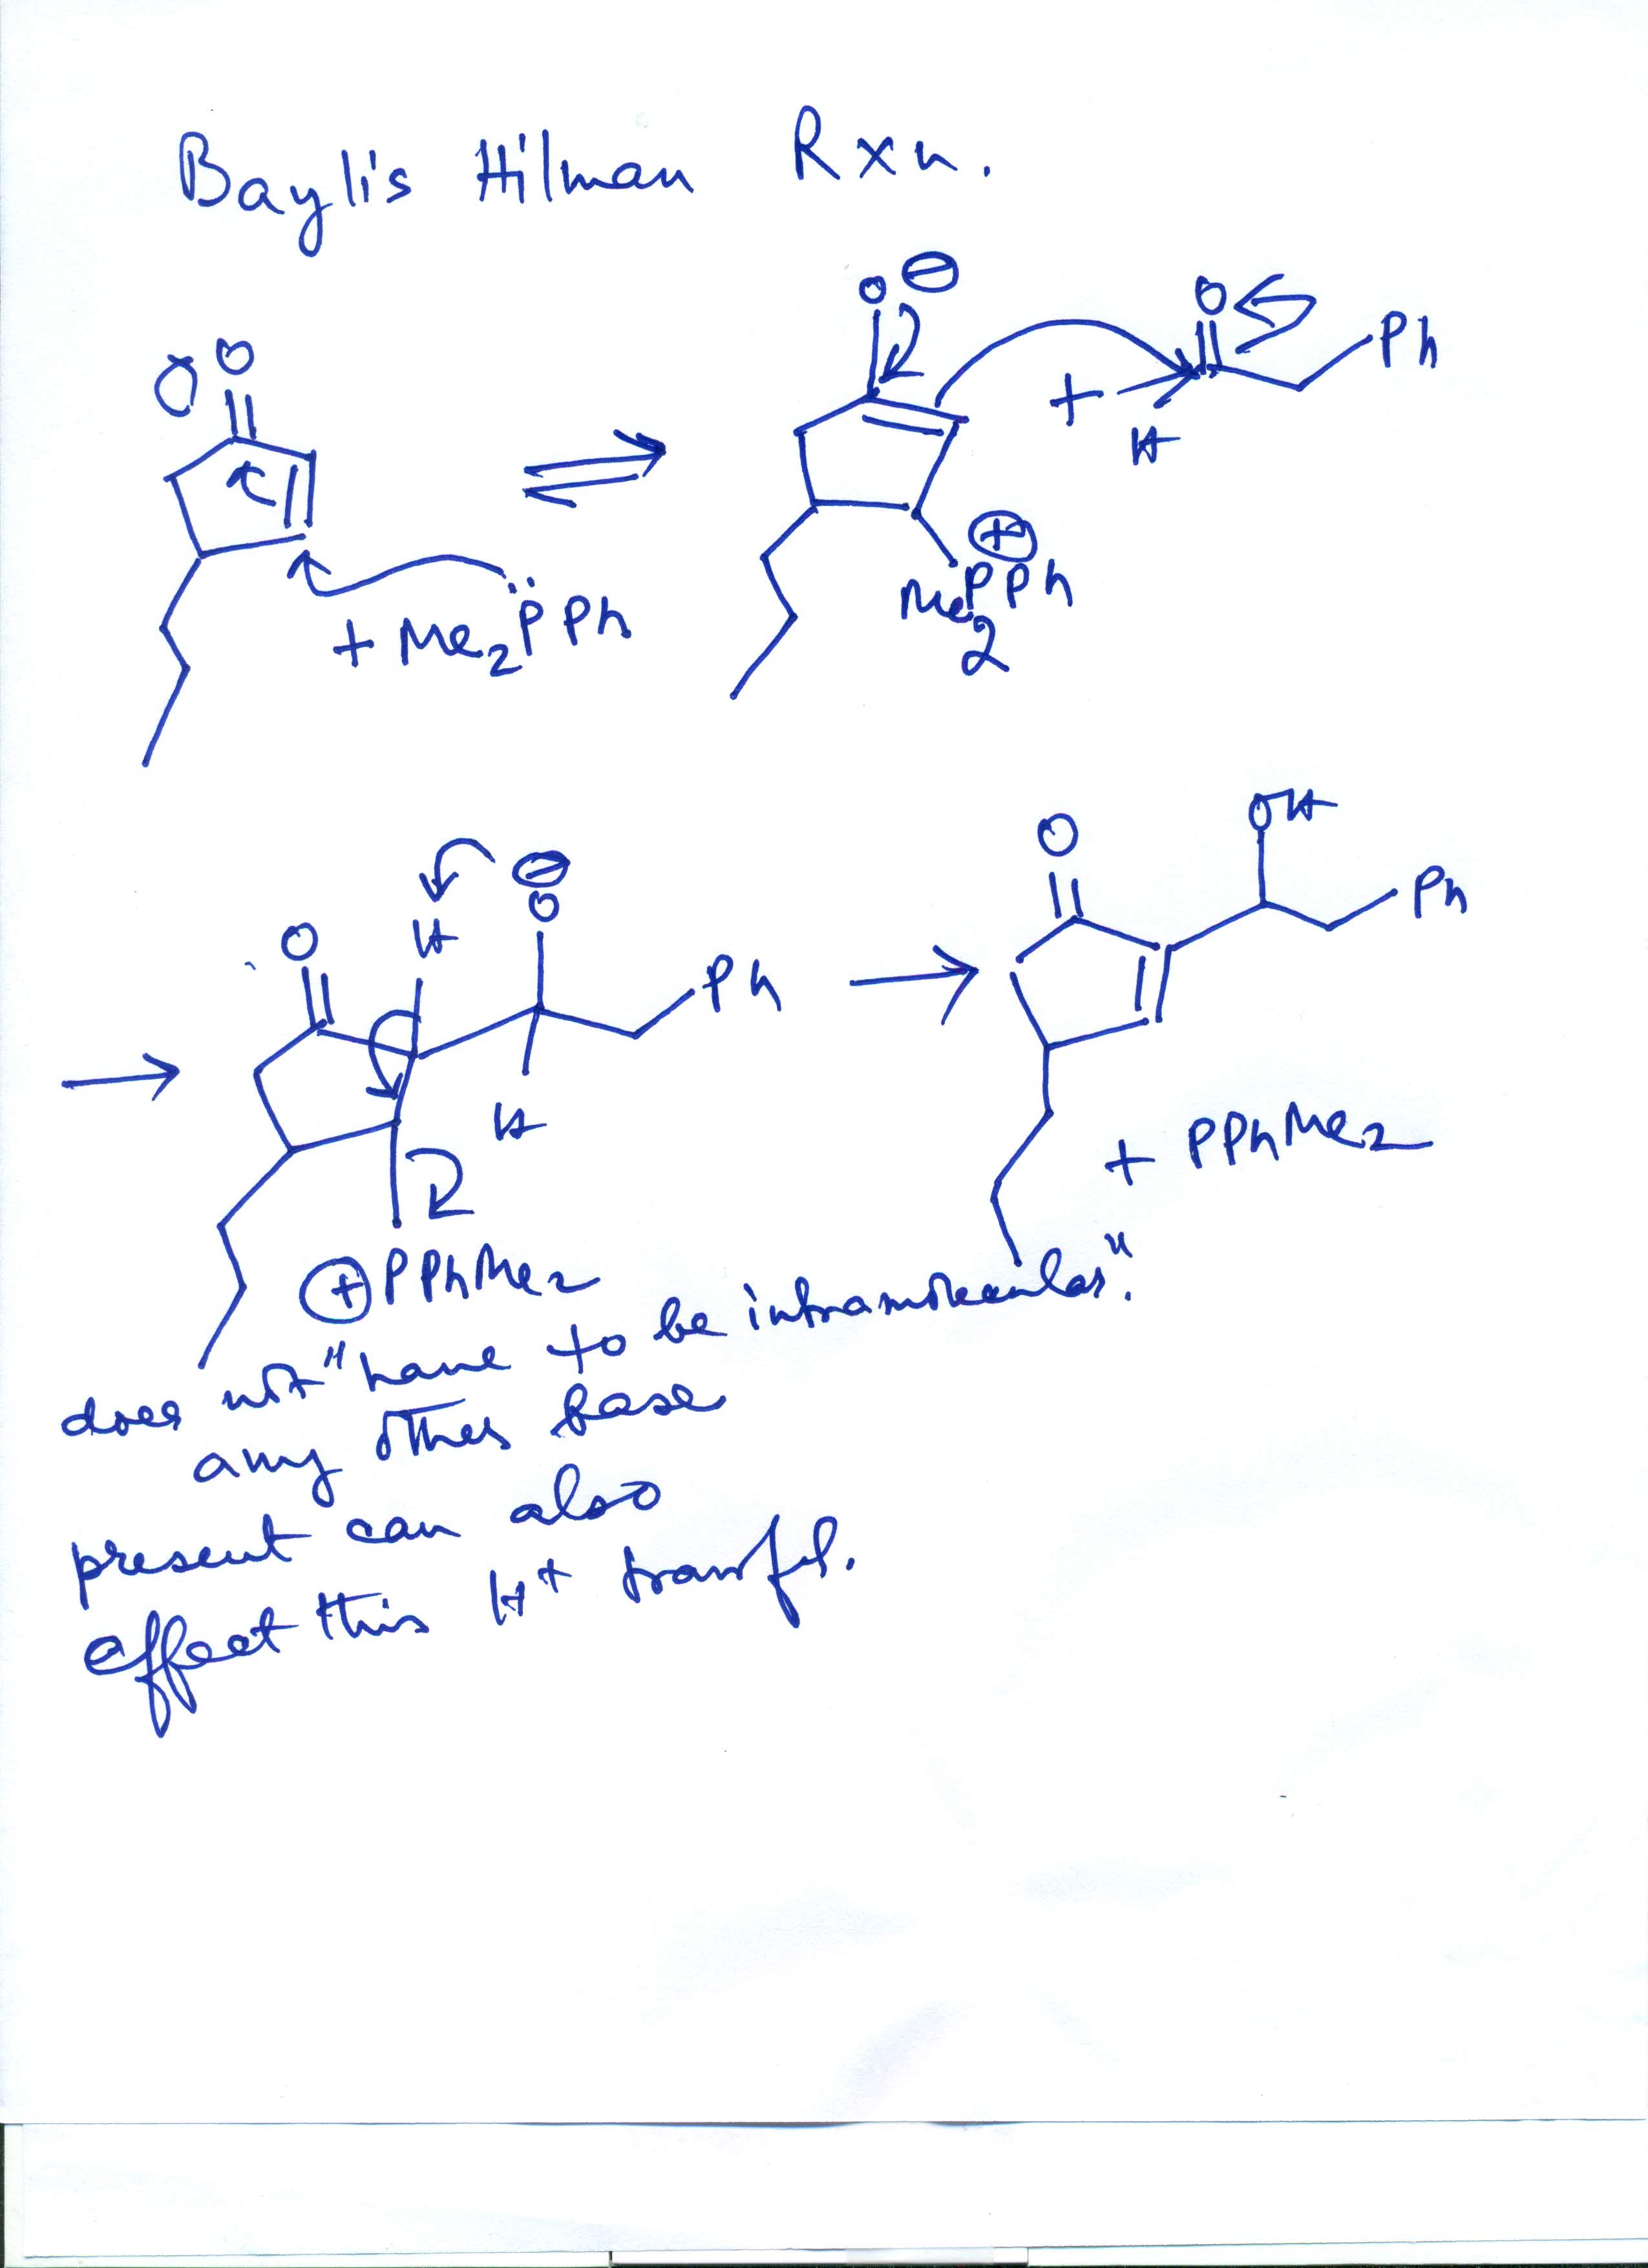 Baylis Hilman Rxn.
O ⊖
O
O
Ph
+
H
⊕
Me2PPh
+ Me2PPh
OH
⊖
O
H
O
O
Ph
Ph
H
+ PPhMe2
⊕PPhMe2
does not "have to be intramolecular".
any other base
present can also
effect this H+ transfer.